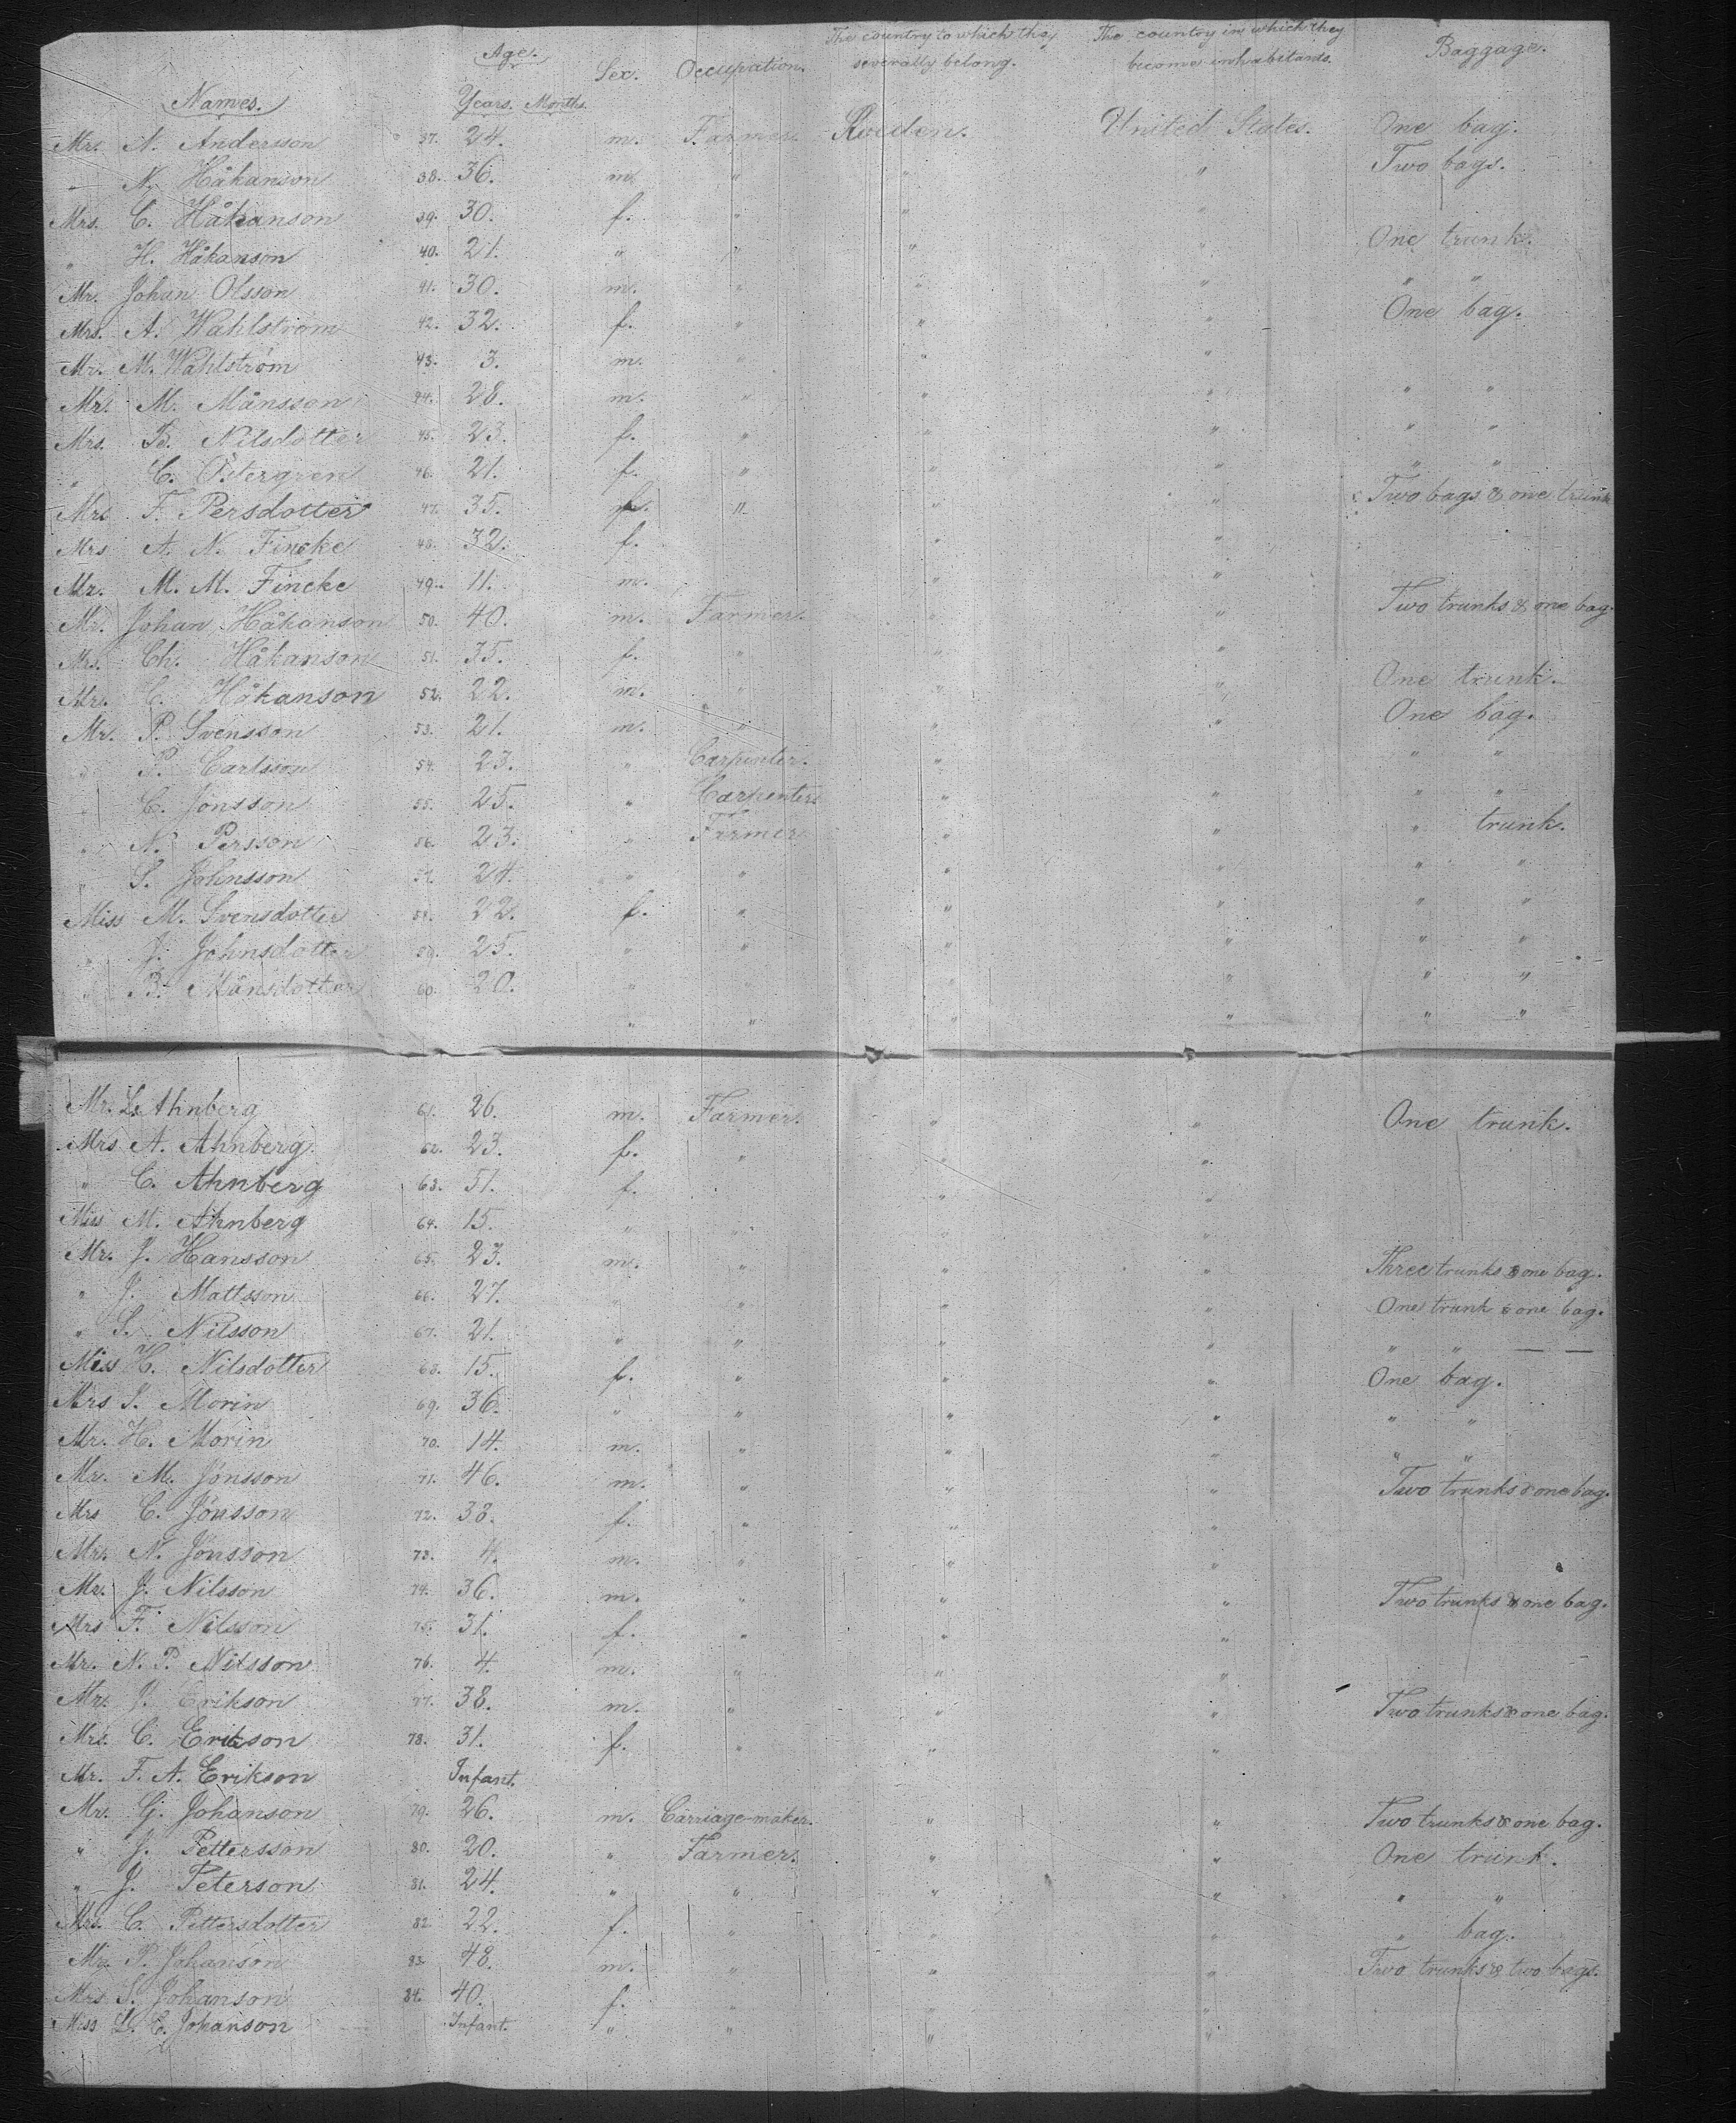 Names. Age. Years. Months. Sex. Occupation. The country to which they severally belong. The country in which they become inhabitants. Baggage.
Mr. N. Andersson 37. 24. m. Farmer. Sweden. United States. One bag.
" N. Håkanson 38. 36. m. " " " Two bags.
Mrs. C. Håkanson 39. 30. f. " " "
" H. Håkanson 40. 21. " " " " One trunk.
Mr. Johan Olsson 41. 30. m. " " " " "
Mrs. A. Wahlström 42. 32. f. " " " One bag.
Mr. M. Wahlström 43. 3. m. " " "
Mr. M. Månsson 44. 28. m. " " " " "
Mrs. B. Nilsdotter 45. 23. f. " " " " "
" C. Östergren 46. 21. f. " " " " "
Mrs. F. Persdotter 47. 35. f. " " " Two bags & one trunk
Mrs A. N. Fincke 48. 32. f. " "
Mr. M. M. Fincke 49. 11. m. " "
Mr. Johan Håkanson 50. 40. m. Farmer. " " Two trunks & one bag.
Mrs. Ch. Håkanson 51. 35. f. " " "
Mr. C. Håkanson 52. 22. m. " " " One trunk.
Mr. P. Svensson 53. 21. m. " " " One bag.
" P. Carlsson 54. 23. " Carpenter. " " "
" C. Jönsson 55. 25. " Carpenter. " " " "
" N. Persson 56. 23. " Farmer. " " " trunk.
" S. Johnsson 57. 24. " " " " " "
Miss M. Svensdotter 58. 22. f. " " " " "
" J. Johnsdotter 59. 25. " " " " " "
" B. Månsdotter 60. 20. " " " " " "
" " " " " "
Mr. L. Ahnberg 61. 26. m. Farmer. " " One trunk.
Mrs A. Ahnberg. 62. 23. f. " " "
" C. Ahnberg 63. 51. f. " "
Miss M. Ahnberg 64. 15. " " " "
Mr. J. Hansson 65. 23. m. " " " Three trunks & one bag.
" J. Mattsson 66. 27. " " " " One trunk & one bag.
" S. Nilsson 67. 21. " " " " " " — —
Miss H. Nilsdotter 68. 15. f. " " " One bag.
Mrs S. Morin 69. 36. " " " " " "
Mr. H. Morin 70. 14. m. " " " " "
Mr. M. Jönsson 71. 46. m. " " " Two trunks & one bag.
Mrs C. Jönsson 72. 38. f. " " "
Mr. N. Jönsson 73. 4. m. " " "
Mr. J. Nilsson 74. 36. m. " " " Two trunks & one bag.
Mrs F. Nilsson 75. 31. f. " " "
Mr. N. P. Nilsson 76. 4. m. " " "
Mr. J. Erikson 77. 38. m. " " " Two trunks & one bag.
Mrs. C. Erikson 78. 31. f. " " "
Mr. F. A. Erikson Infant.
Mr. G. Johanson 79. 26. m. Carriage-maker. " " Two trunks & one bag.
" J. Pettersson 80. 20. " Farmer. " " One trunk.
" J. Peterson 81. 24. " " " " " "
Mrs. C. Pettersdotter 82. 22. f. " " " " bag.
Mr. P. Johanson 83. 48. m. " " " Two trunks & two bags.
Mrs S. Johanson 84. 40. f. " " "
Miss L. C. Johanson Infant. " " " "